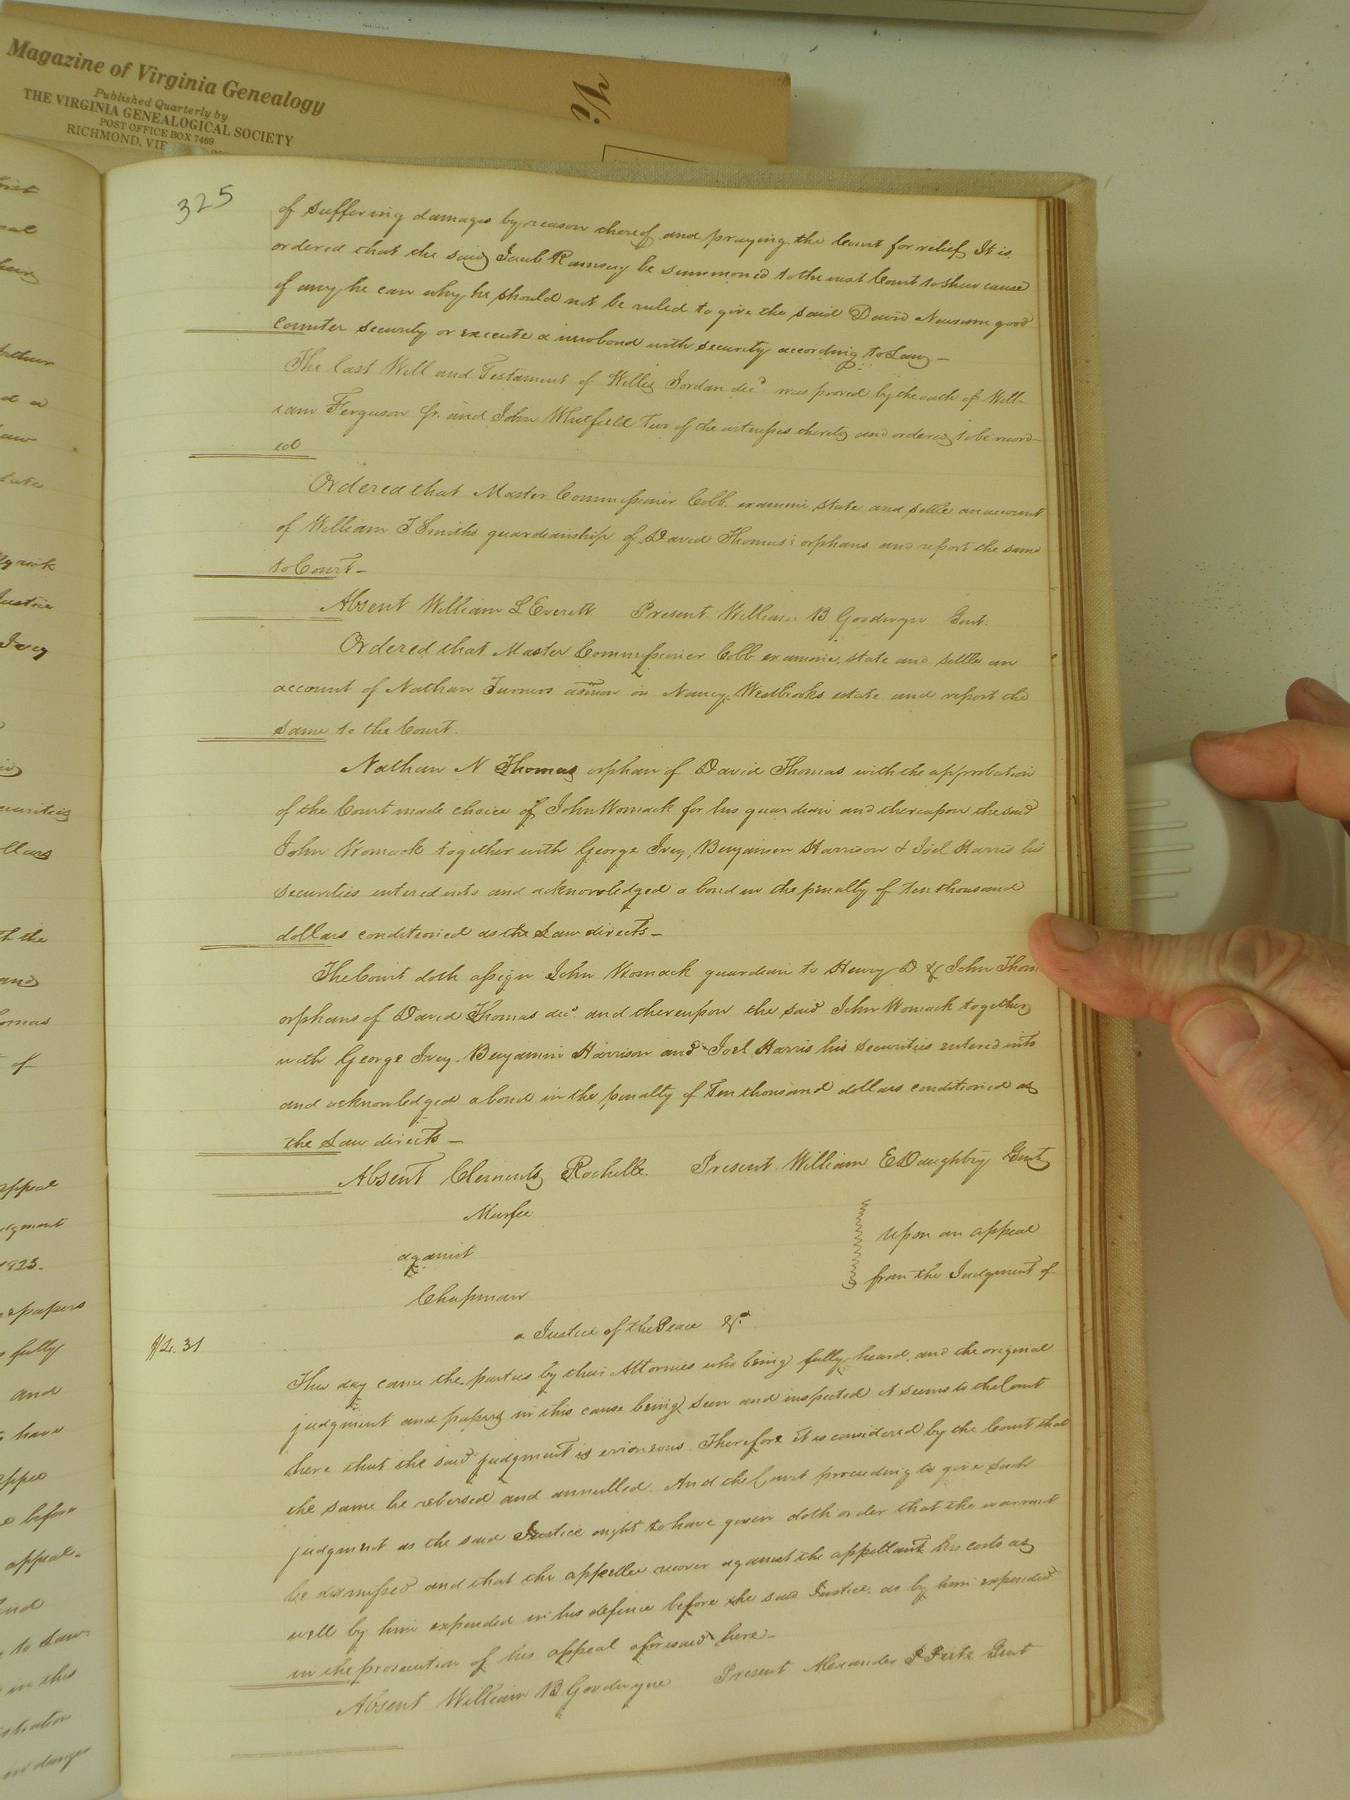 Magazine of Virginia Genealogy
Published Quarterly by
THE VIRGINIA GENEALOGICAL SOCIETY
POST OFFICE BOX 7469
RICHMOND, VIR
Vi
325
of suffering damages by reason thereof and praying the Court for relief It is
ordered that the said Jacob Ramsey be summoned to the next Court to shew cause
if any he can why he should not be ruled to give the said David Newsom good
counter security or execute a new bond with security according to Law –
The last Will and Testament of Willis Jordan decd was proved by the oath of Will-
iam Ferguson Jr. and John Whitfield Two of the witnesses thereto and ordered to be record-
ed
Ordered that Master Commissioner Cobb examine, state and settle an account
of William T Smiths guardianship of David Thomas's orphans and report the same
to Court –
Absent William L Everett Present William B Goodwyn Gent.
Ordered that Master Commissioner Cobb examine, state and settle an
account of Nathan Turners admon on Nancy Westbrooks estate and report the
same to the Court.
Nathan N Thomas orphan of David Thomas with the approbation
of the Court made choice of John Womack for his guardian and thereupon the said
John Womack together with George Ivey, Benjamin Harrison & Joel Harris his
securities entered into and acknowledged a bond in the penalty of ten thousand
dollars conditioned as the Law directs –
The Court doth assign John Womack guardian to Henry D & John Thom
orphans of David Thomas decd and thereupon the said John Womack together
with George Ivey Benjamin Harrison and Joel Harris his securities entered into
and acknowledged a bond in the penalty of Ten thousand dollars conditioned as
the Law directs –
Absent Clements Rochelle. Present William E Daughtry Gent
Murfee
against
Chapman
Upon an appeal
from the Judgment of
a Justice of the Peace &c
This day came the parties by their Attornies who being fully heard, and the original
judgment and papers in this cause being seen and inspected it seems to the Court
here that the said judgment is erroneous. Therefore it is considered by the Court that
the same be reversed and annulled. And the Court proceeding to give such
judgment as the said Justice ought to have given doth order that the warrant
be dismissed and that the appellee recover against the appellant his costs as
well by him expended in his defence before the said Justice, as by him expended
in the prosecution of his appeal aforesaid here –
Absent William B. Goodwyne Present Alexander P Peete Gent